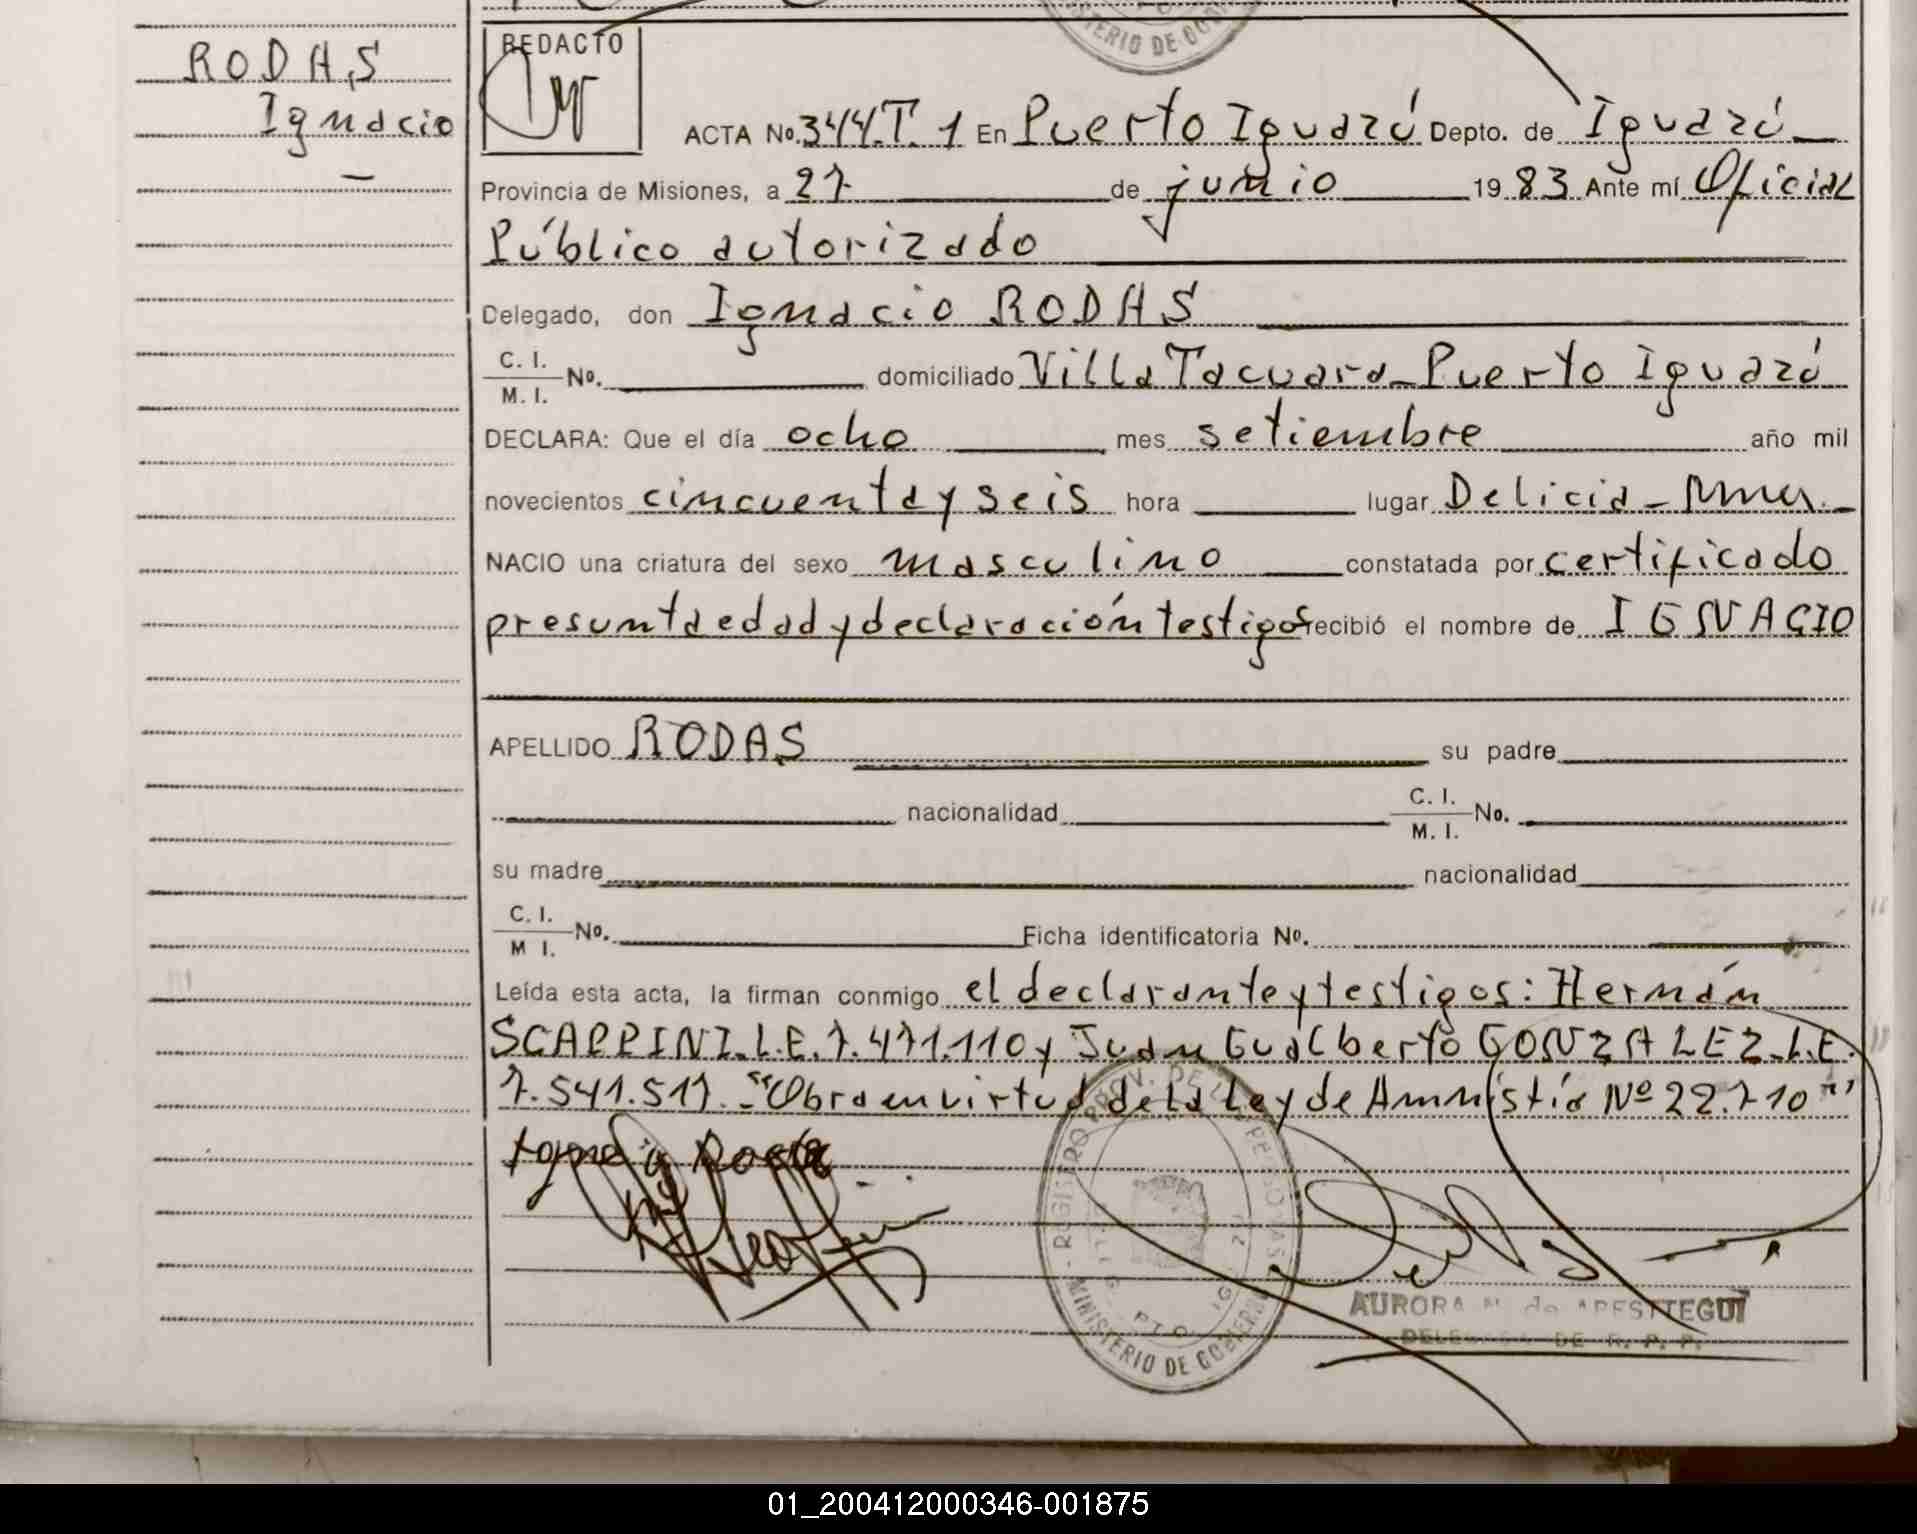 RODAS
Ignacio
REDACTO
ACTA No. 344.T. 1 En Puerto Iguazú Depto. de Iguazú
Provincia de Misiones, a 27 de junio 1983 Ante mí Oficial
Público autorizado
Delegado, don Ignacio RODAS
C. I.
M. I. No. domiciliado Villa Tacuara_Puerto Iguazú
DECLARA: Que el día ocho mes setiembre año mil
novecientos cincuenta y seis hora lugar Delicia - Mnes.
NACIO una criatura del sexo masculino constatada por certificado
presunta edad y declaración testigos recibió el nombre de IGNACIO
APELLIDO RODAS su padre
nacionalidad C. I.
M. I. No.
su madre nacionalidad
C. I.
M I. No. Ficha identificatoria No.
Leída esta acta, la firman conmigo el declarante y testigos: Hernán
SCAPPINI.L.E.7.471.110 y Juan Gualberto GONZALEZ.L.E.
7.541.517.-"Obra en virtud de la Ley de Amnistía Nº 22.710"
REGISTRO PROV. DE LAS PERSONAS
MINISTERIO DE GOBIERNO
AURORA M. de APESTEGUI
DELEGADA DE R. P. P.
01_200412000346-001875